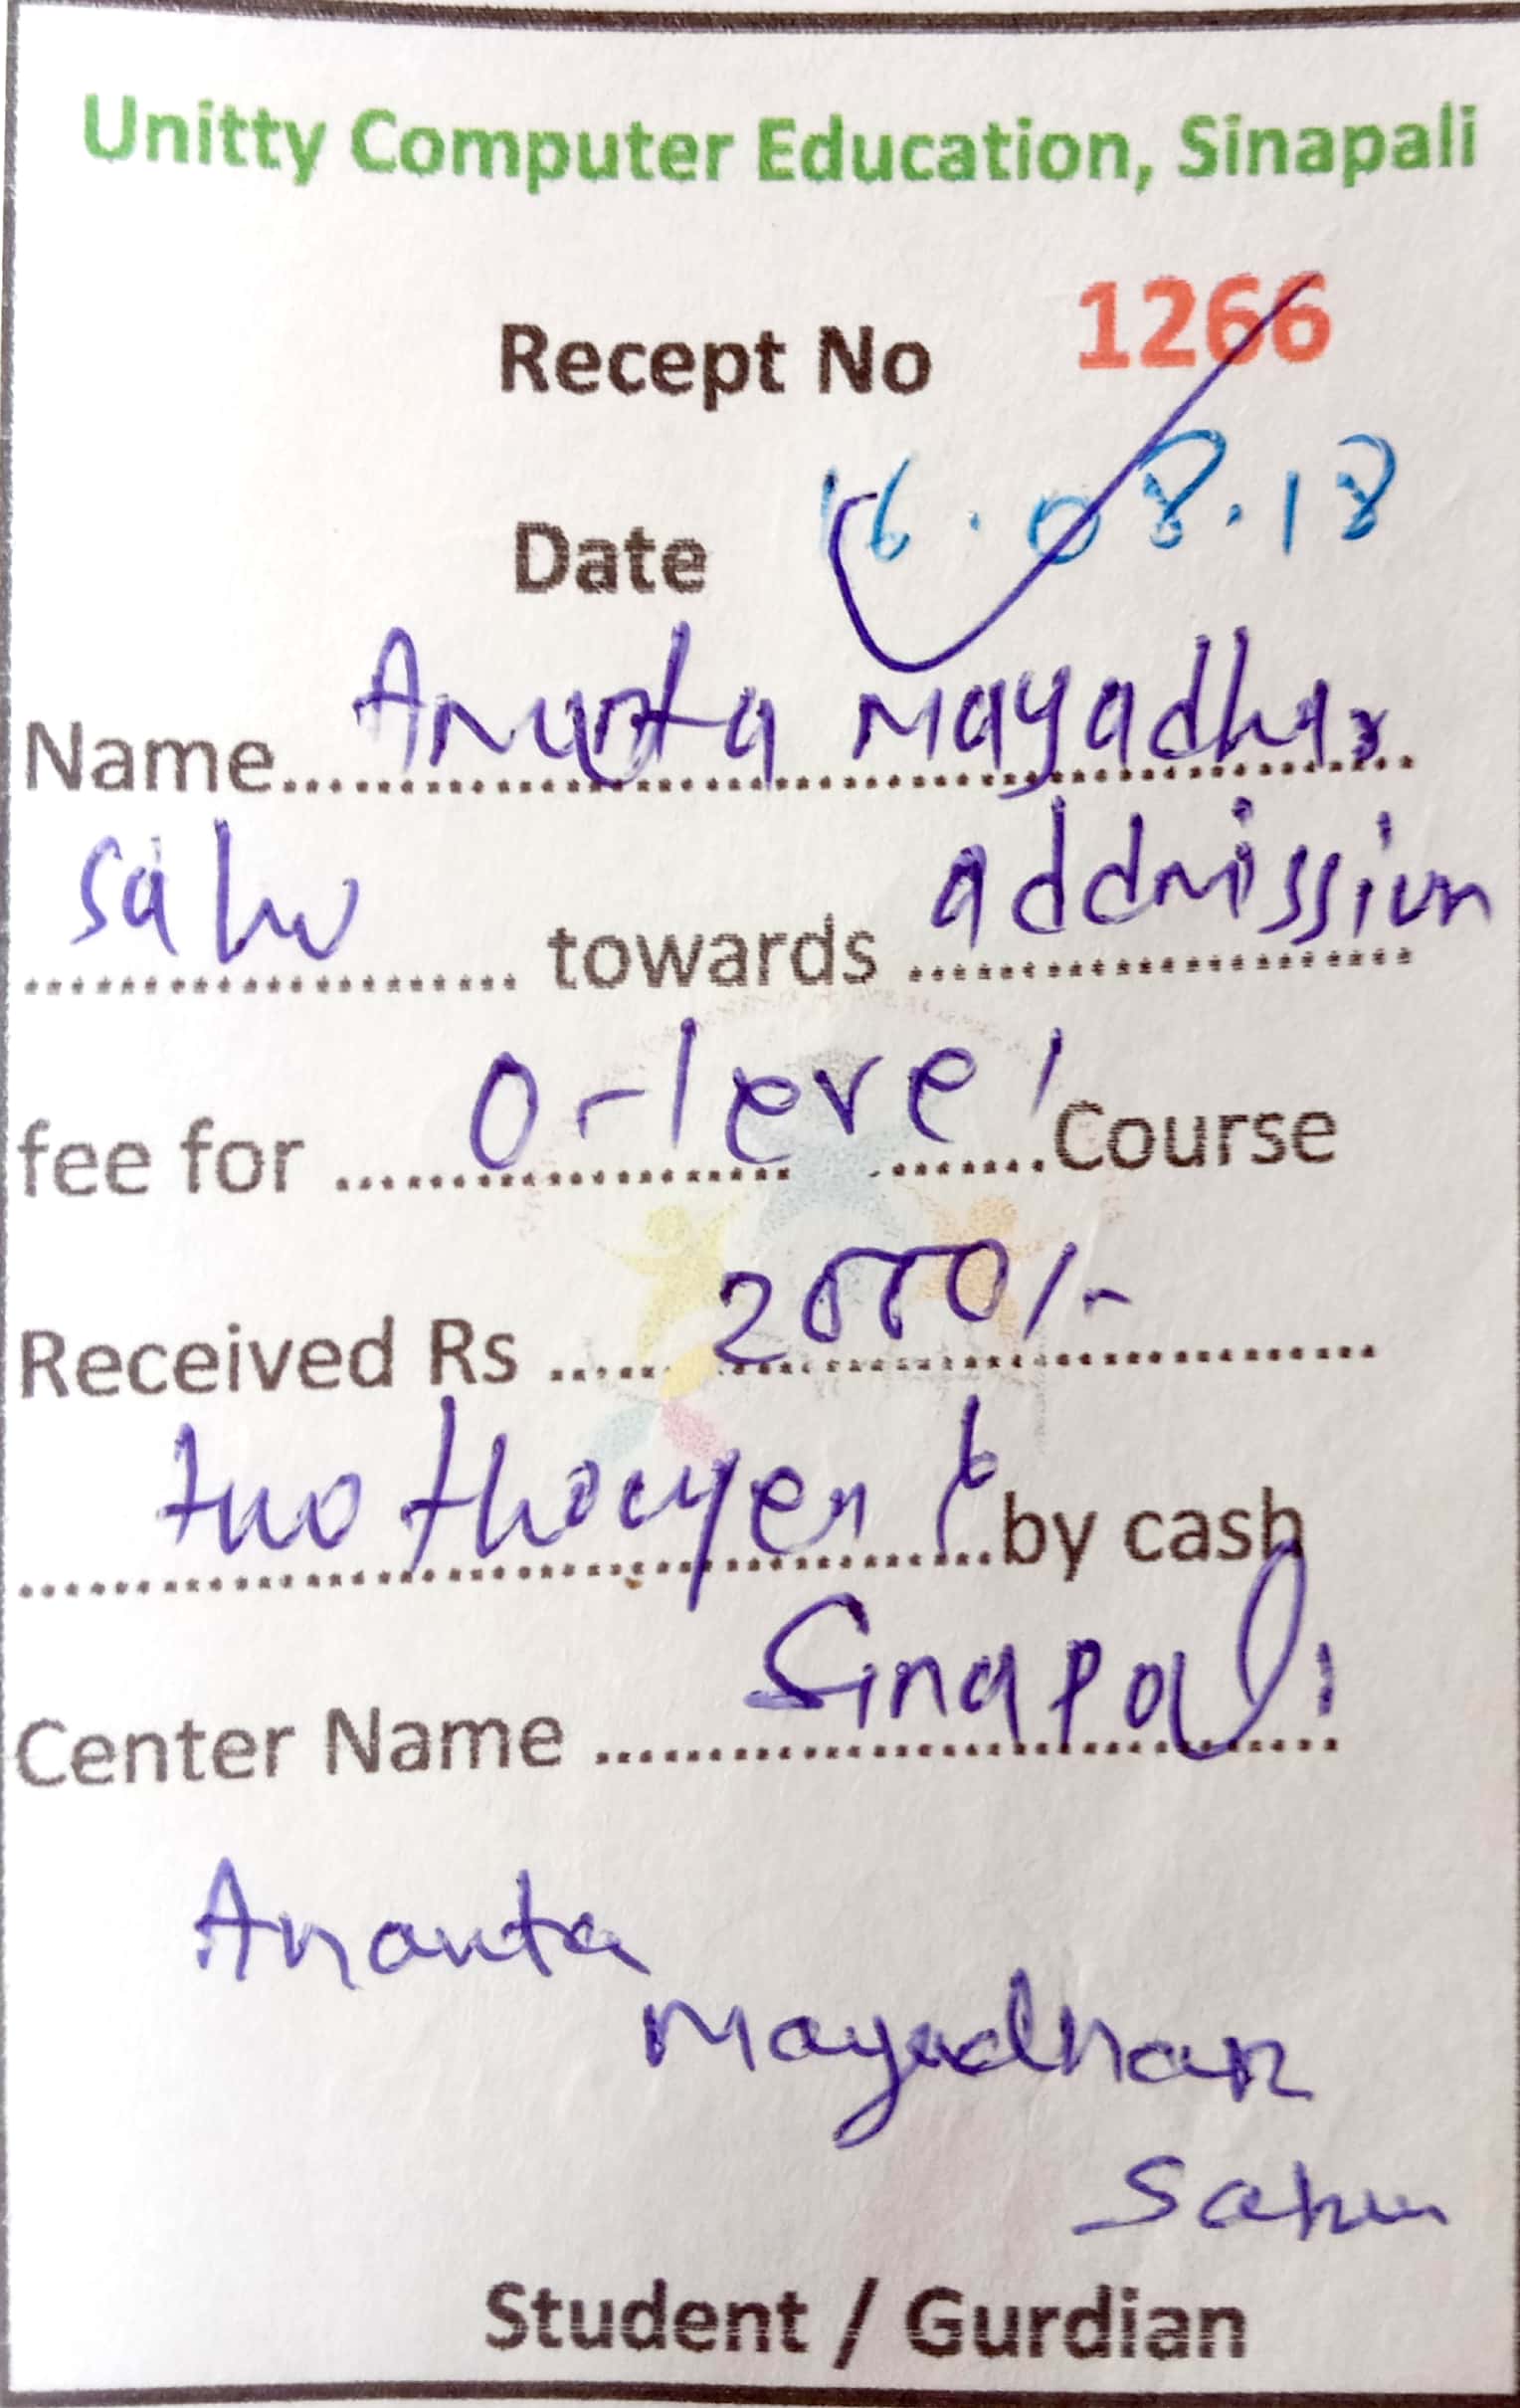 Unitty Computer Education, Sinapali
Recept No 1266
Date 16.08.18
Name Ananta Mayadhar
Sahu towards addmission
fee for O-level Course
Received Rs 2000/-
two by cash
Center Name Sinapali
Ananta
Mayadhar
Sahu
Student / Gurdian